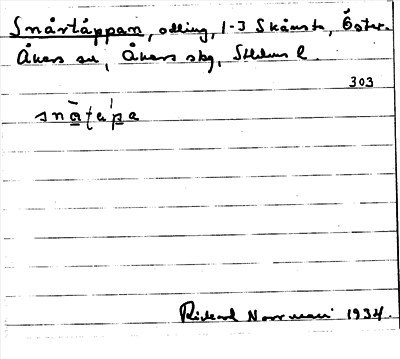 Snårtäppan, odling, 1-3 Skånsta, Öster-
Åkers sn, Åkers skg, Sthlms l.
303
Rickard Norrman 1934.